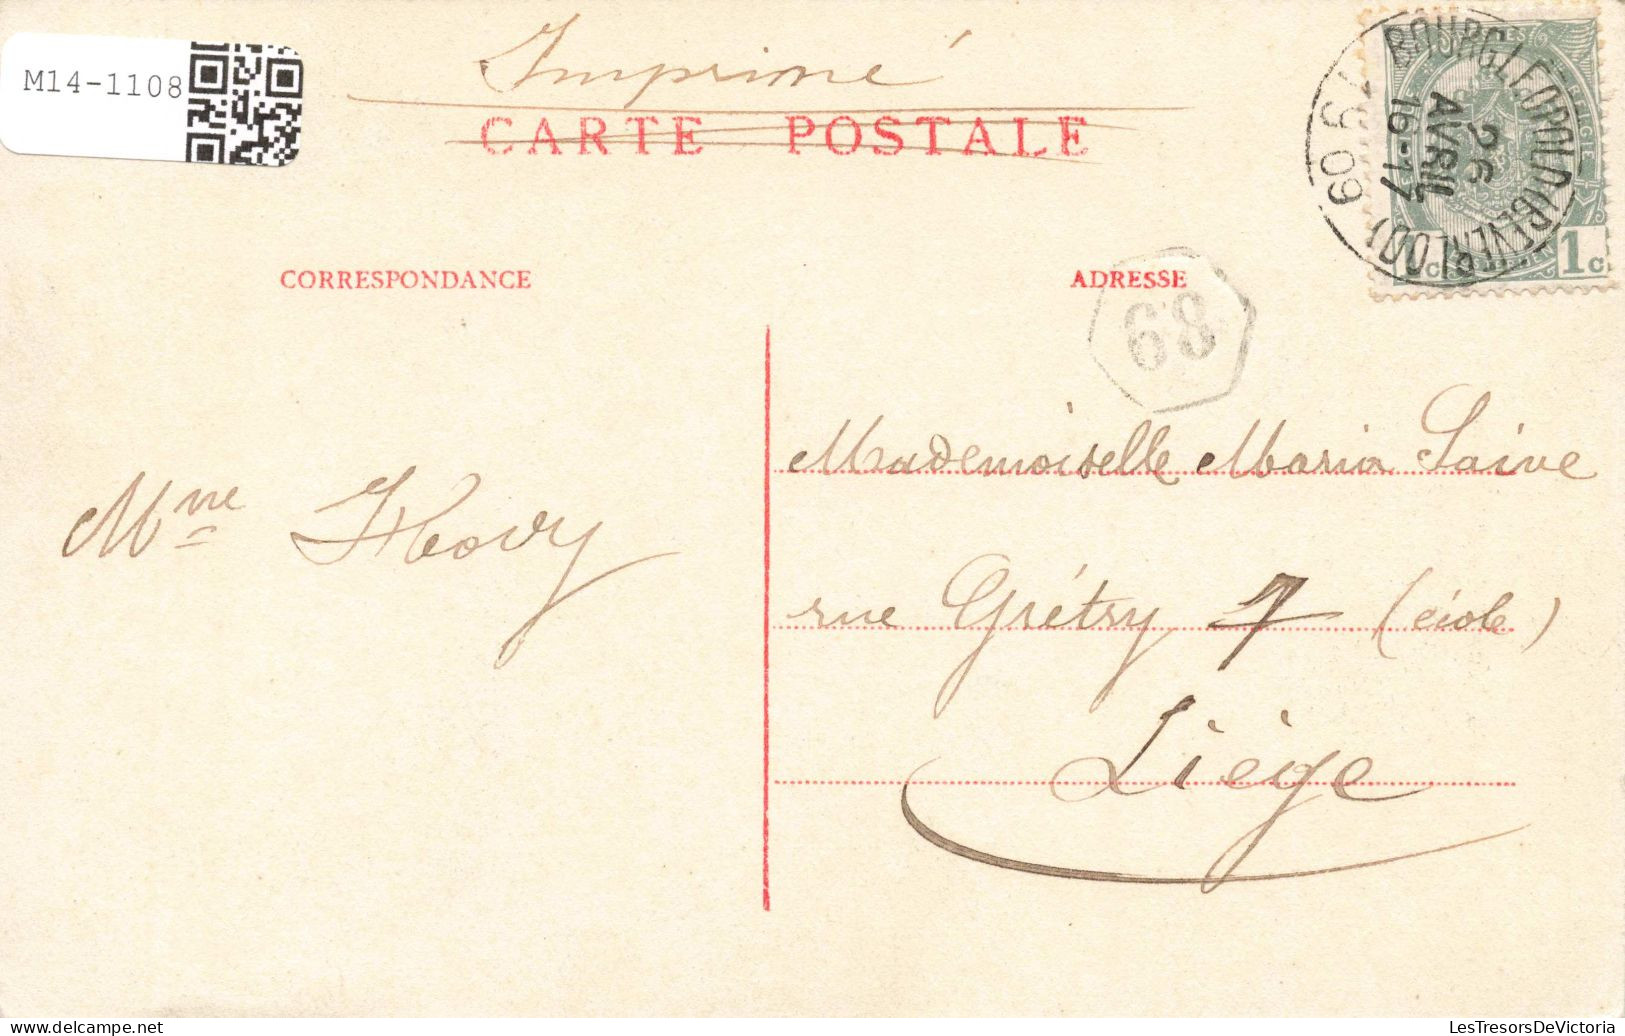 M14-1108
Imprimé
CARTE POSTALE
BOURG LEOPOLD (BEVERLOO)
26
AVRIL
16-17
1909
1c 1c
CORRESPONDANCE
ADRESSE
68
Mademoiselle Maria Saive
Mme
rue Grétry 7 (école)
Liège
LesTresorsDeVictoria
www.delcampe.net